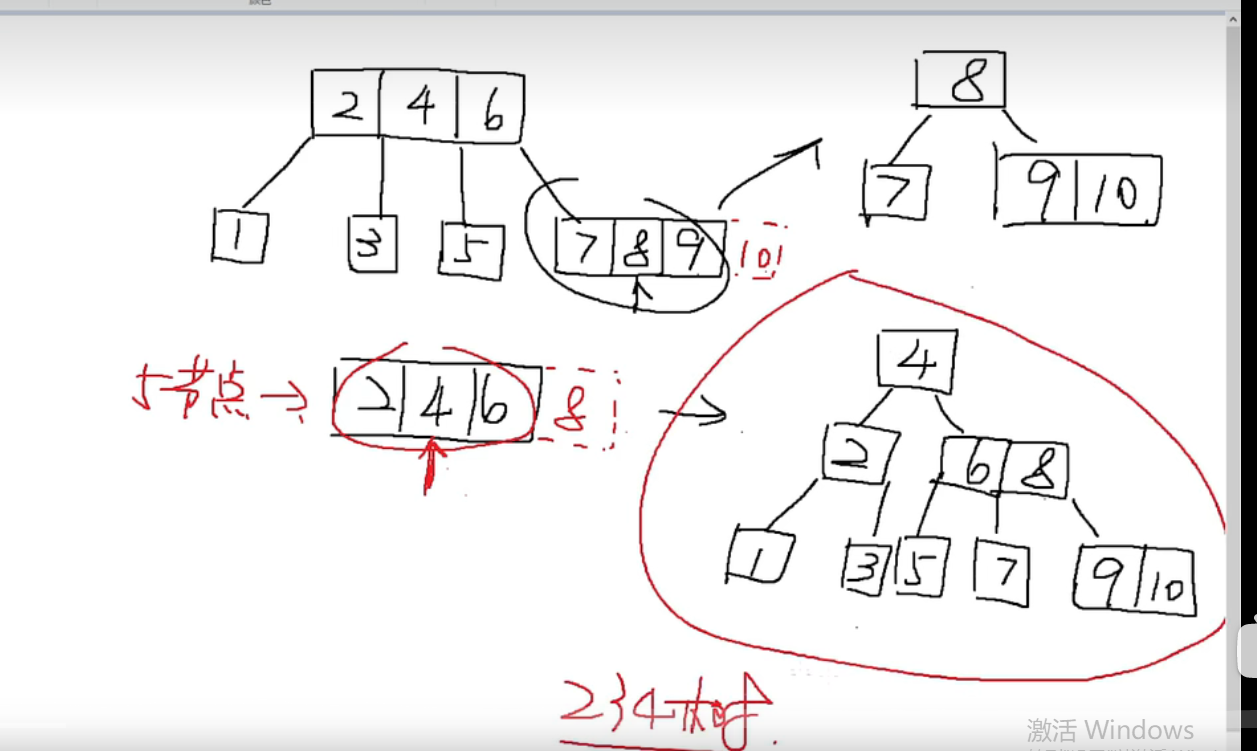 颜色
2 4 6
8
1 3 5 7 8 9 10
7 9 10
5节点→ 2 4 6 8
4
2 6 8
1 3 5 7 9 10
234树
激活 Windows